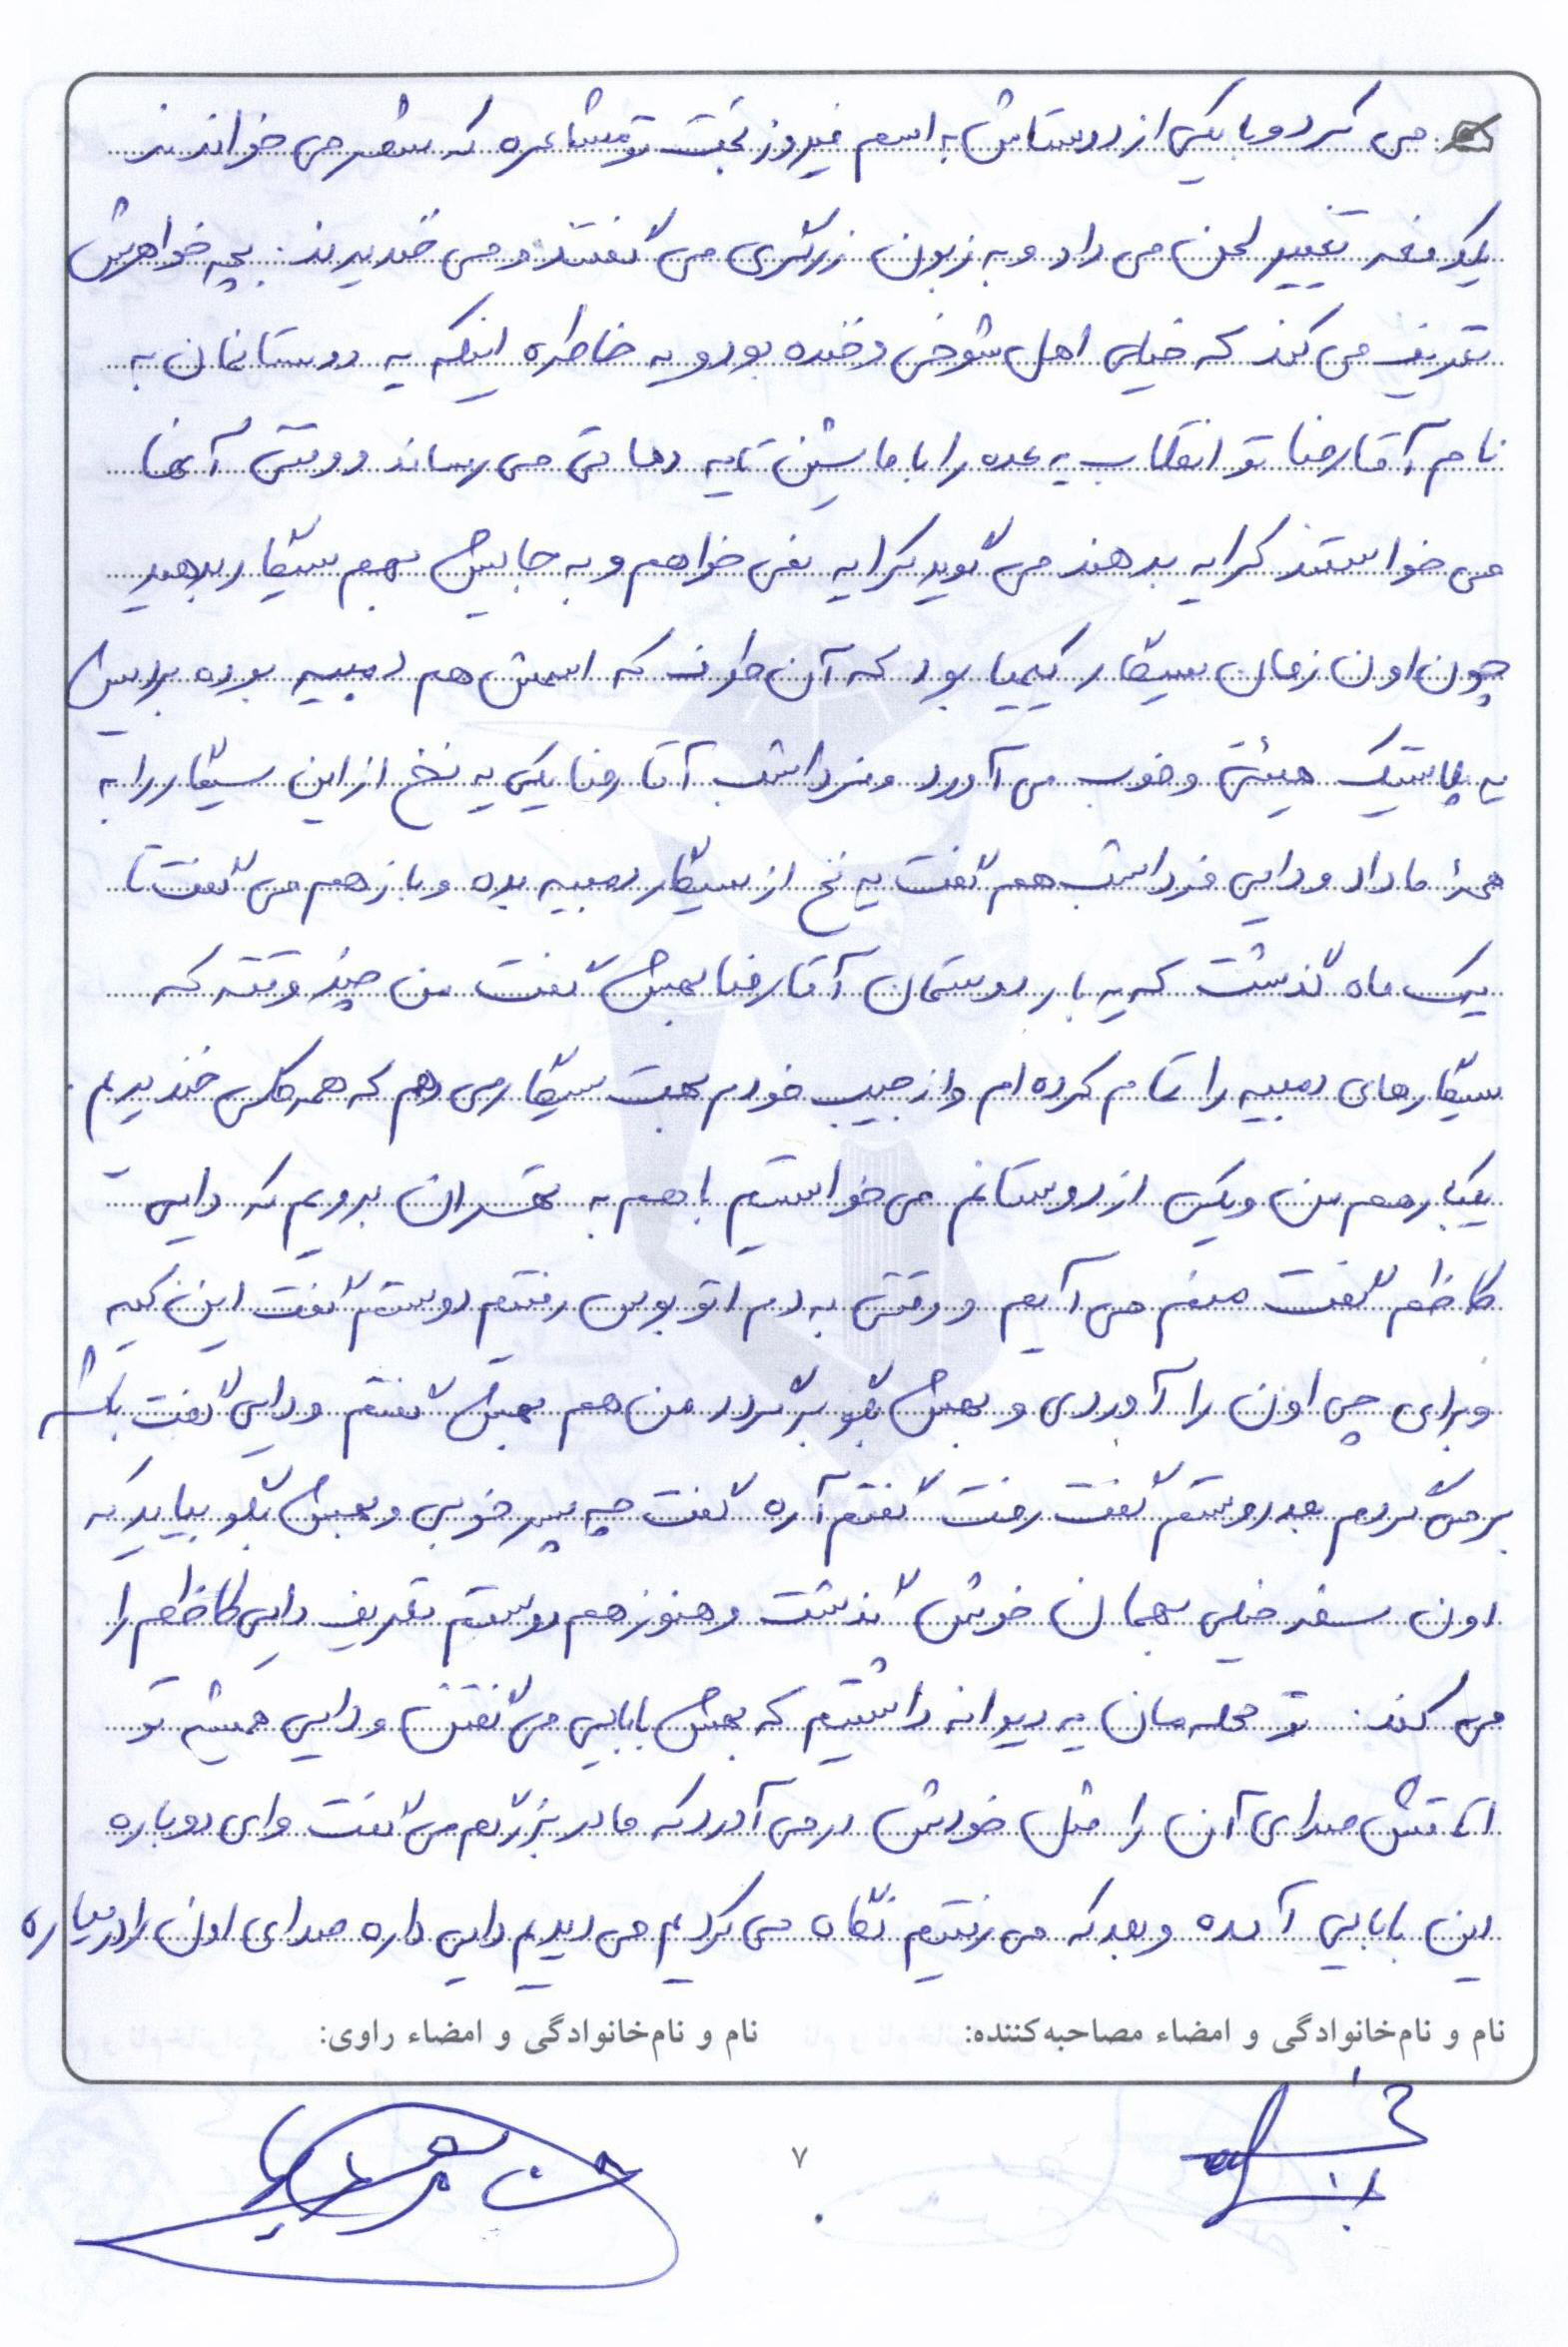 می کرد و با یکی از دوستاش به اسم فیروزبخت تو مشاعره که شعر می خواندند
یکدفعه تغییر لحن می داد و به زبون زرگری می گفتند و می خندیدند. بچه خواهرش
تعریف می کند که خیلی اهل شوخی و خنده بود و یه خاطره اینکه یه دوستانمان به
نام آقا رضا تو انقلاب یه عده را با ماشین تا یه دهاتی می رساند و وقتی آنها
می خواستند کرایه بدهند می گوید کرایه نمی خواهم و به جایش بهم سیگار بدهید
چون اون زمان سیگار کیمیا بود که آن طرف که اسمش هم دبیه بوده برایش
یه پلاستیک هیئتی و خوب می آورد و فرداشب آقا رضا یکی یه نخ از این سیگار را به
همهٔ ما داد و دایی فرداشب هم گفت یه نخ از سیگار دبیه بده و باز هم می گفت تا
یک ماه گذشت که یه بار دوستمان آقا رضا بهش گفت من چند وقته که
سیگارهای دبیه را تمام کرده ام و از جیب خودم بهت سیگار می دهم که همه کلی خندیدیم.
یکبار هم من و یکی از دوستانم می خواستیم با هم به تهران برویم که دایی
کاظم گفت منم می آیم و وقتی به دم اتوبوس رفتیم دوستم گفت این کیه
و برای چی اون را آوردی و بهش بگو برگردد من هم بهش گفتم و دایی گفت باشه
برمی گردم بعد دوستم گفت رفت گفتم آره گفت چه پسر خوبی و بهش بگو بیاید که
اون سفر خیلی بهمان خوش گذشت و هنوز هم دوستم تعریف دایی کاظم را
می کند. تو محله مان یه دیوانه داشتیم که بهش بابایی می گفتن و دایی همیشه تو
اتاقش صدای آن را مثل خودش درمی آورد که مادربزرگم می گفت وای دوباره
این بابایی آمده و بعد که می رفتیم نگاه می کردیم می دیدیم دایی داره صدای اون را درمیاره
نام و نام‌خانوادگی و امضاء مصاحبه‌کننده: نام و نام‌خانوادگی و امضاء راوی:
۷